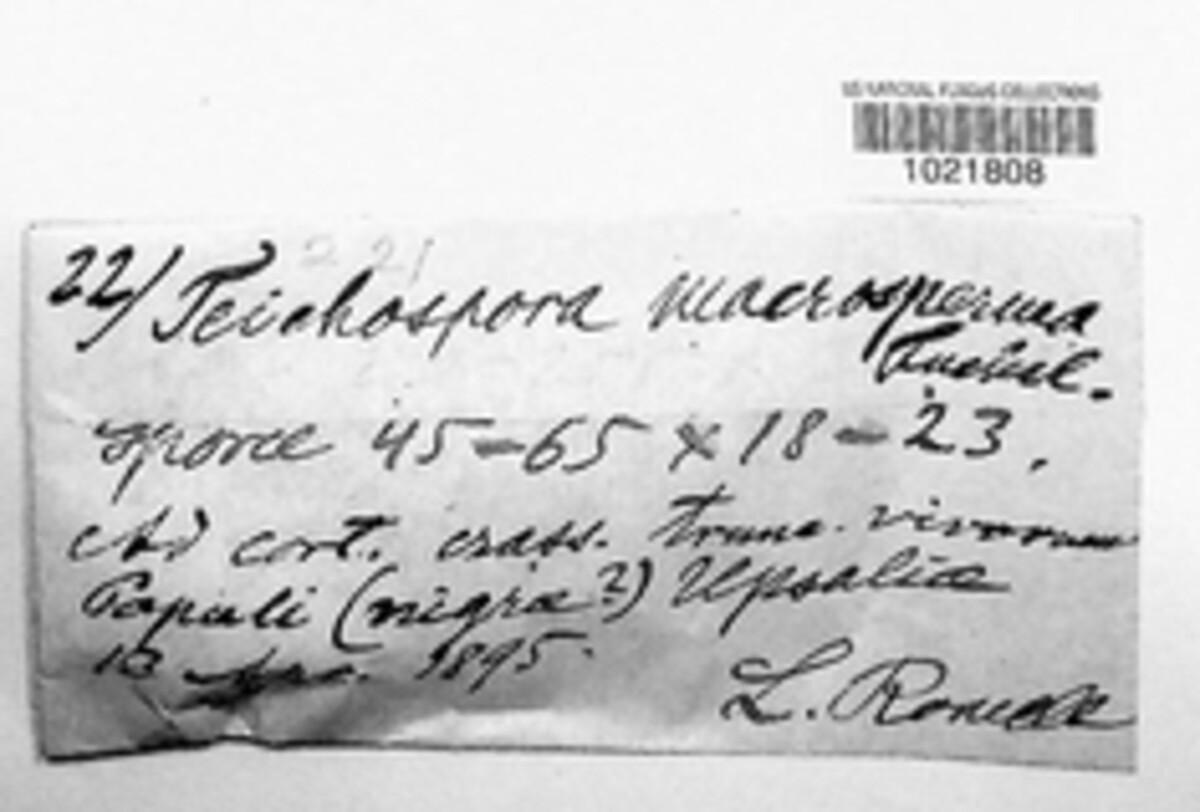 US NATIONAL FUNGUS COLLECTIONS
1021808
221
22) Teichospora macrosperma
Fuckel.
sporæ 45-65 x 18-23.
Ad cort. crass. trunc. vivorum
Populi (nigræ?) Upsaliæ
13 Apr. 1895.
L. Romell